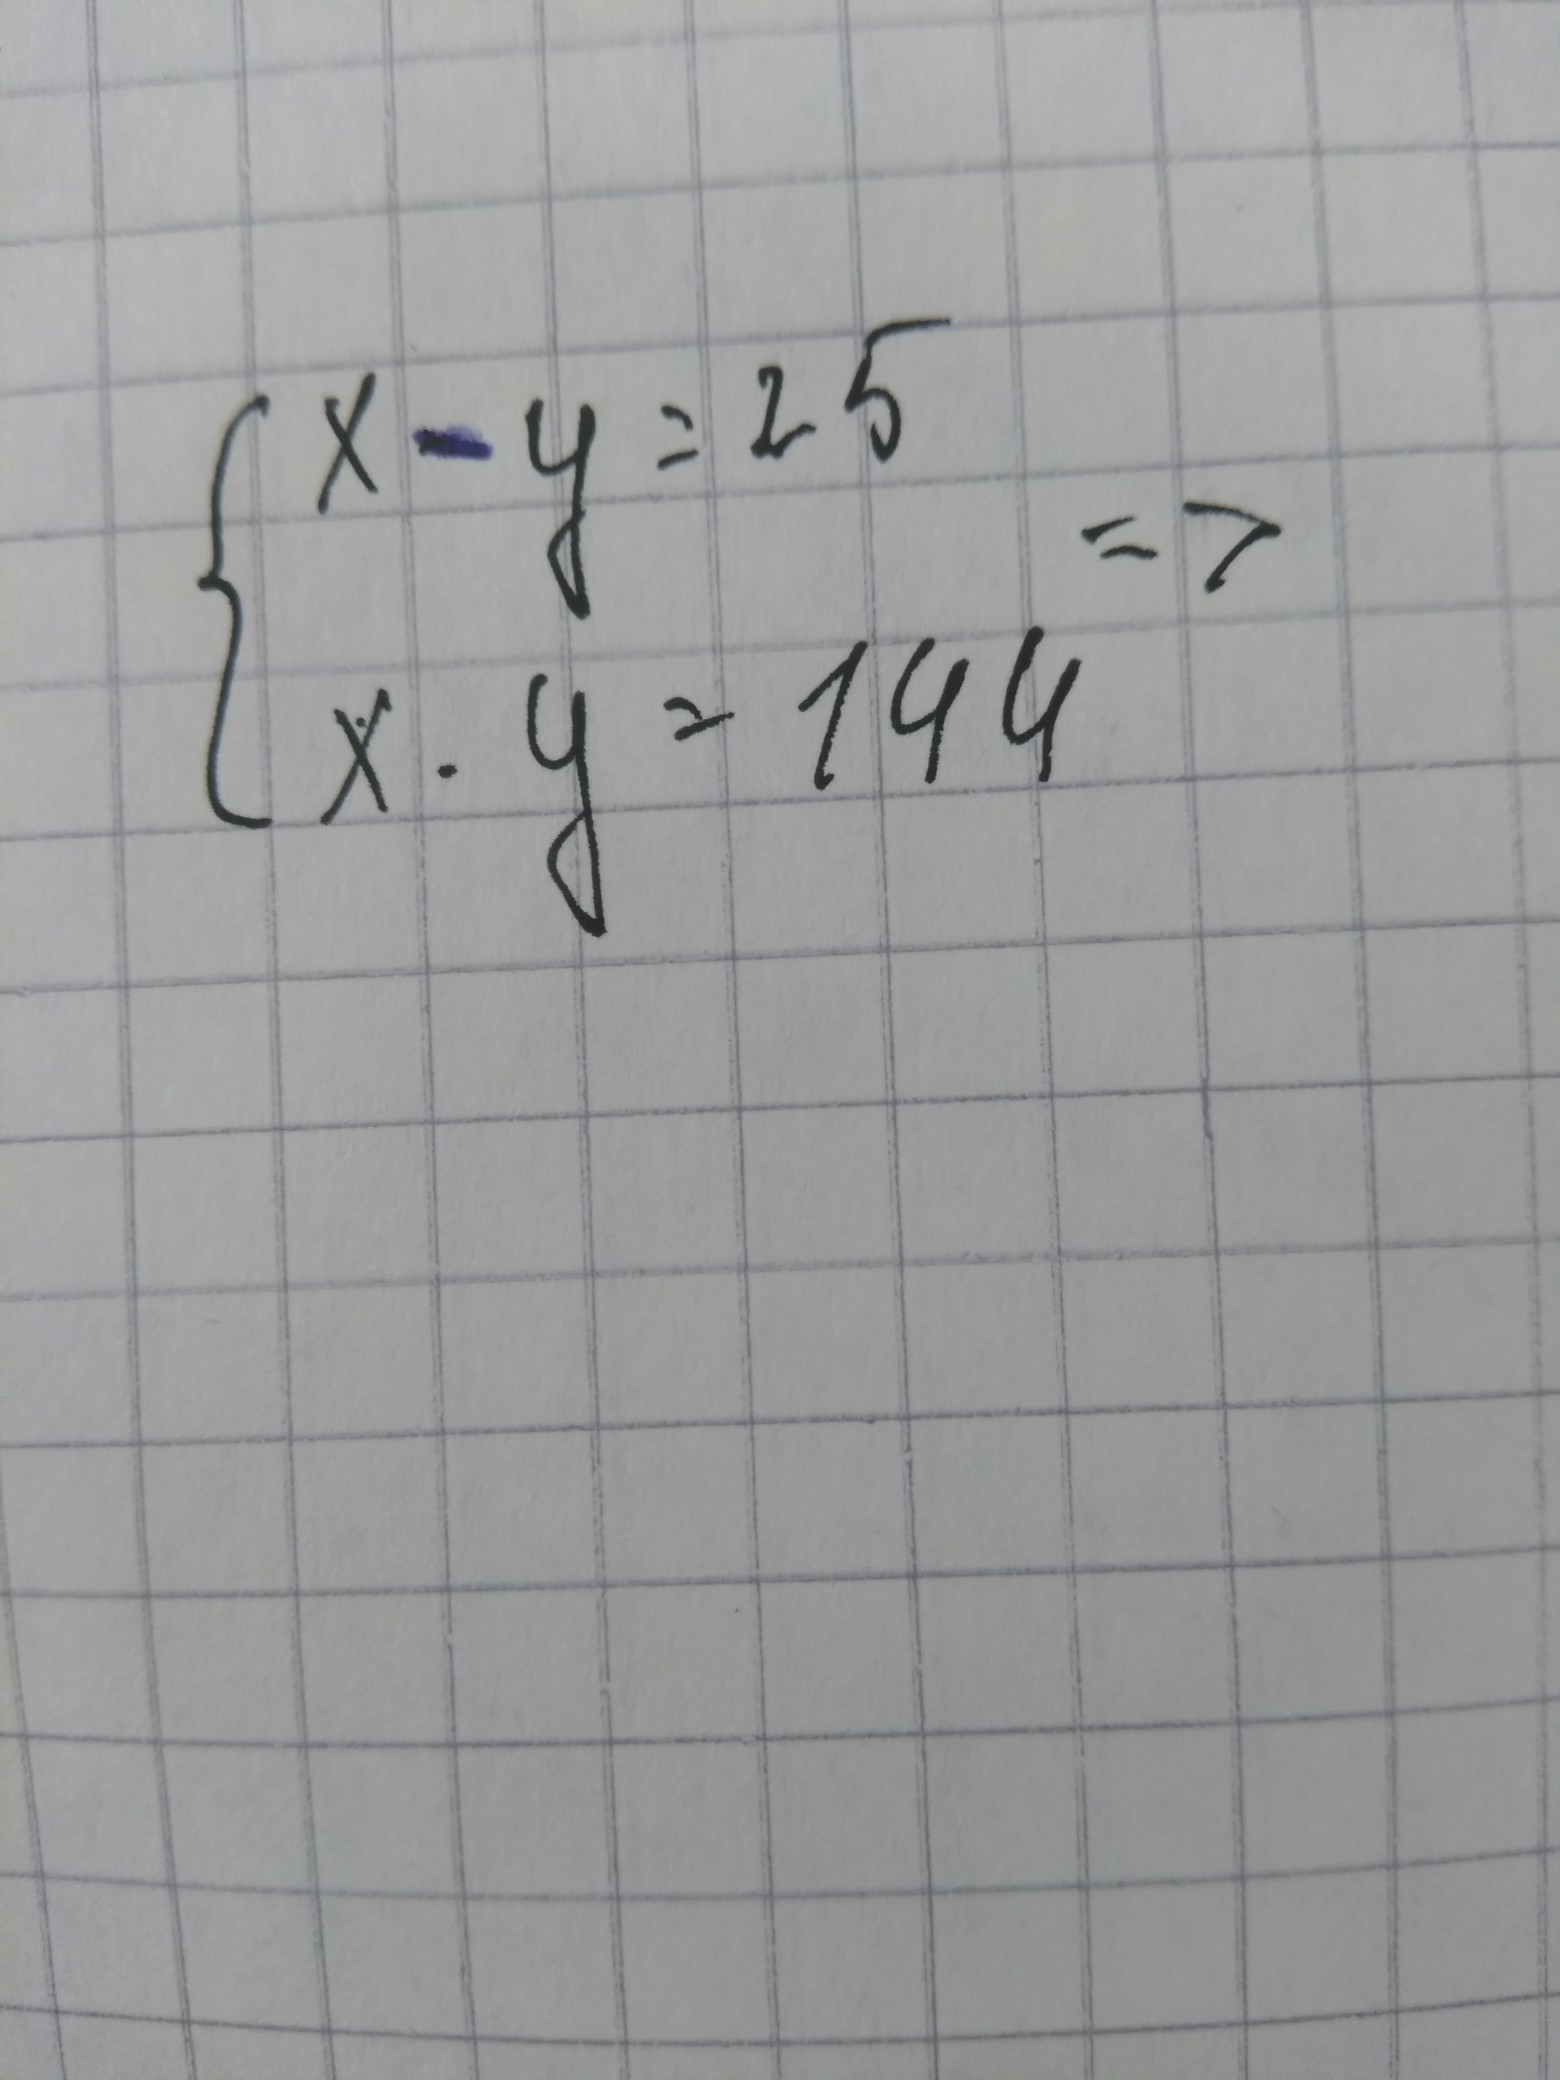 x - y = 25
=>
x · y = 144